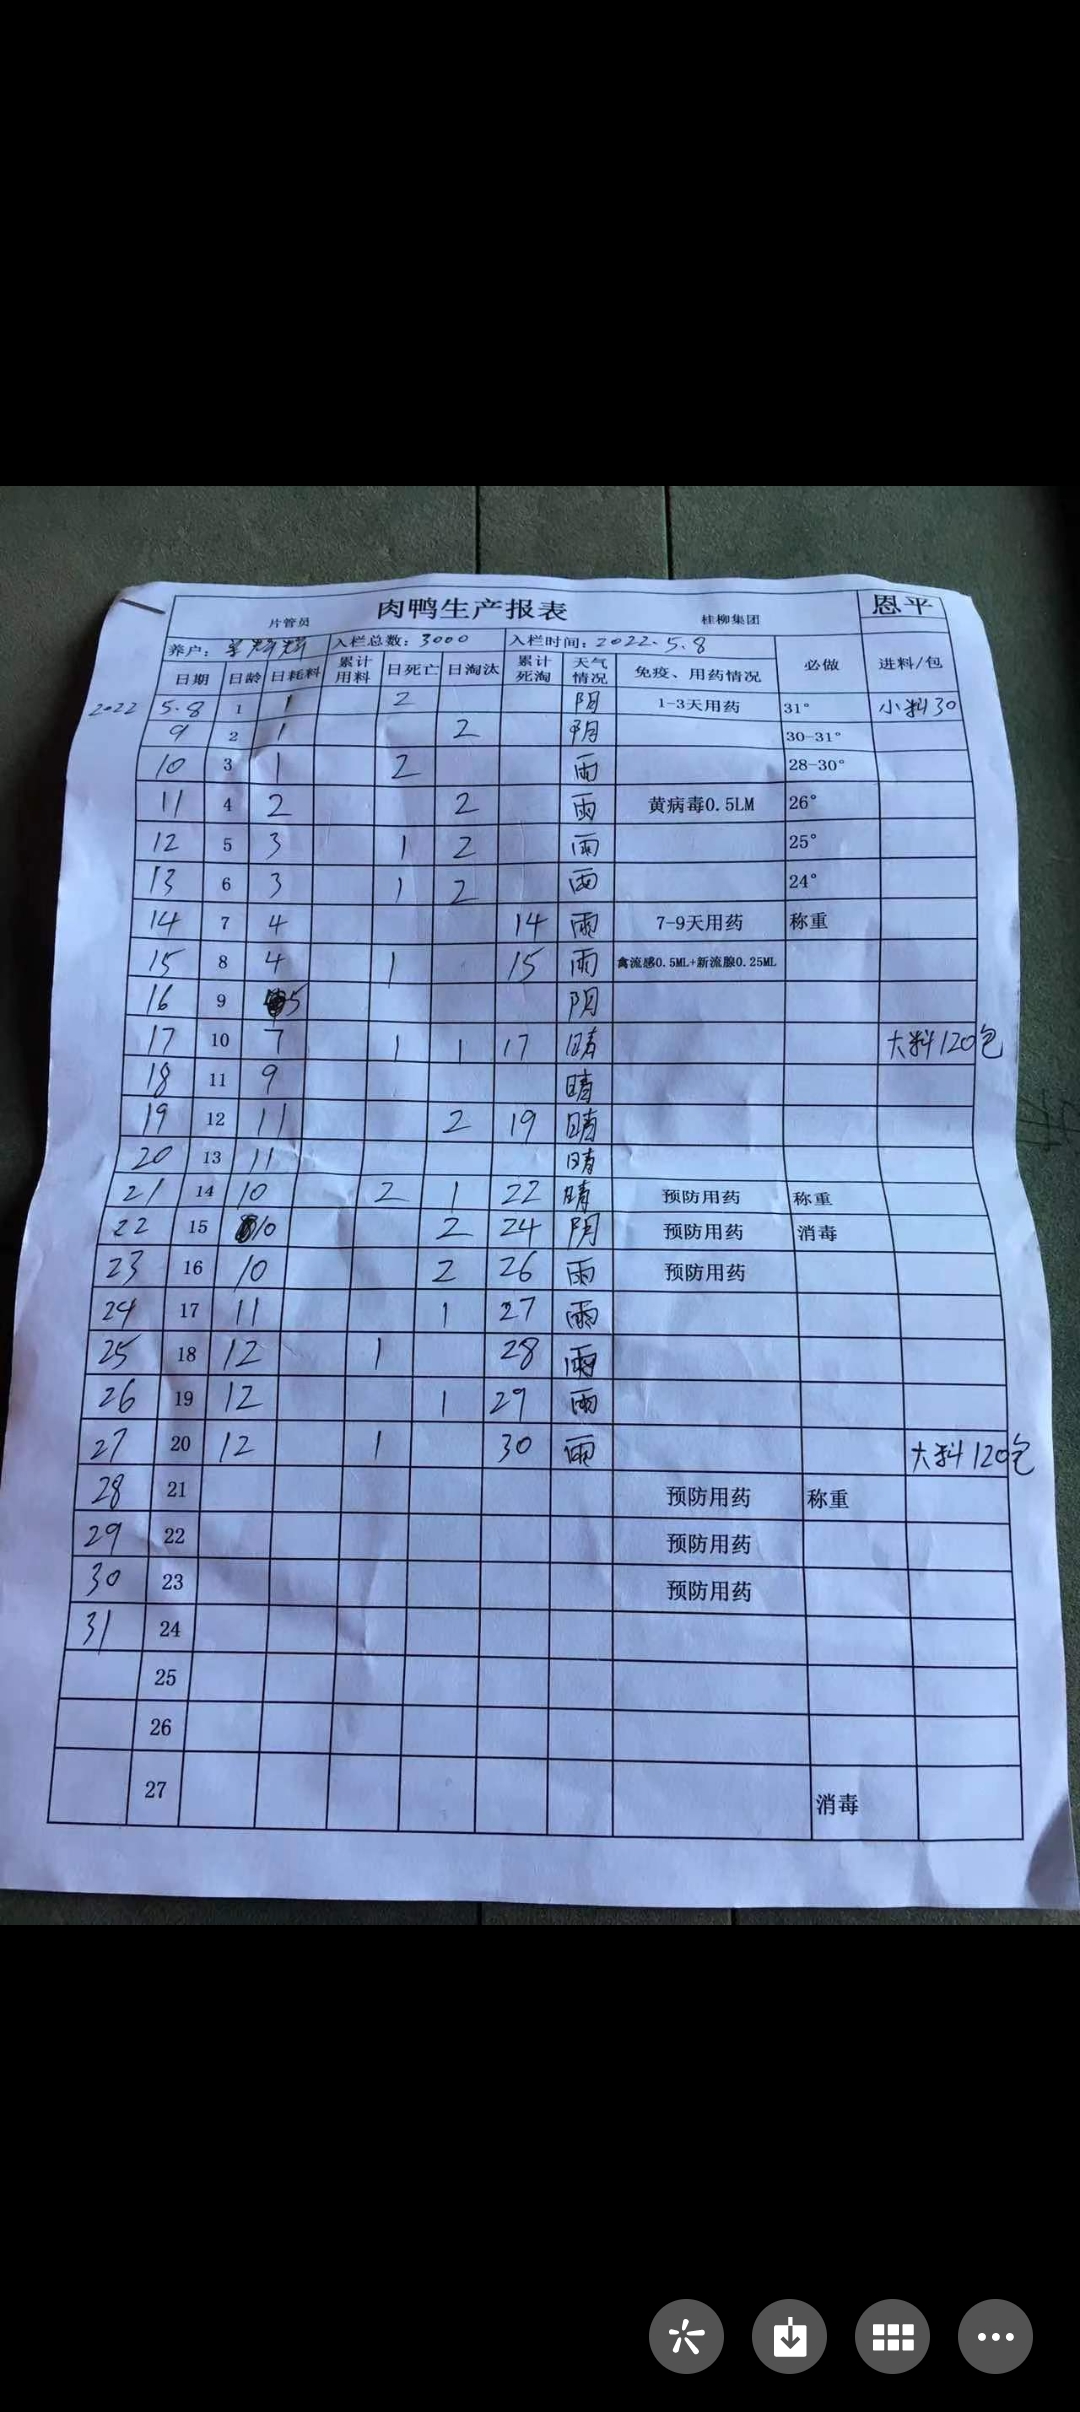 肉鸭生产报表 恩平
片管员 桂柳集团
养户： 入栏总数：3000 入栏时间：2022.5.8
日期 日龄 日耗料 累计用料 日死亡 日淘汰 累计死淘 天气情况 免疫、用药情况 必做 进料/包
2022 5.8 1 1 2 阴 1-3天用药 31° 小料30
9 2 1 2 阴 30-31°
10 3 1 2 雨 28-30°
11 4 2 2 雨 黄病毒0.5LM 26°
12 5 3 1 2 雨 25°
13 6 3 1 2 雨 24°
14 7 4 14 雨 7-9天用药 称重
15 8 4 1 15 雨 禽流感0.5ML+新流腺0.25ML
16 9 5 阴
17 10 7 1 1 17 晴 大料120包
18 11 9 晴
19 12 11 2 19 晴
20 13 11 晴
21 14 10 2 1 22 晴 预防用药 称重
22 15 10 2 24 阴 预防用药 消毒
23 16 10 2 26 雨 预防用药
24 17 11 1 27 雨
25 18 12 1 28 雨
26 19 12 1 29 雨
27 20 12 1 30 雨 大料120包
28 21 预防用药 称重
29 22 预防用药
30 23 预防用药
31 24
25
26
27 消毒